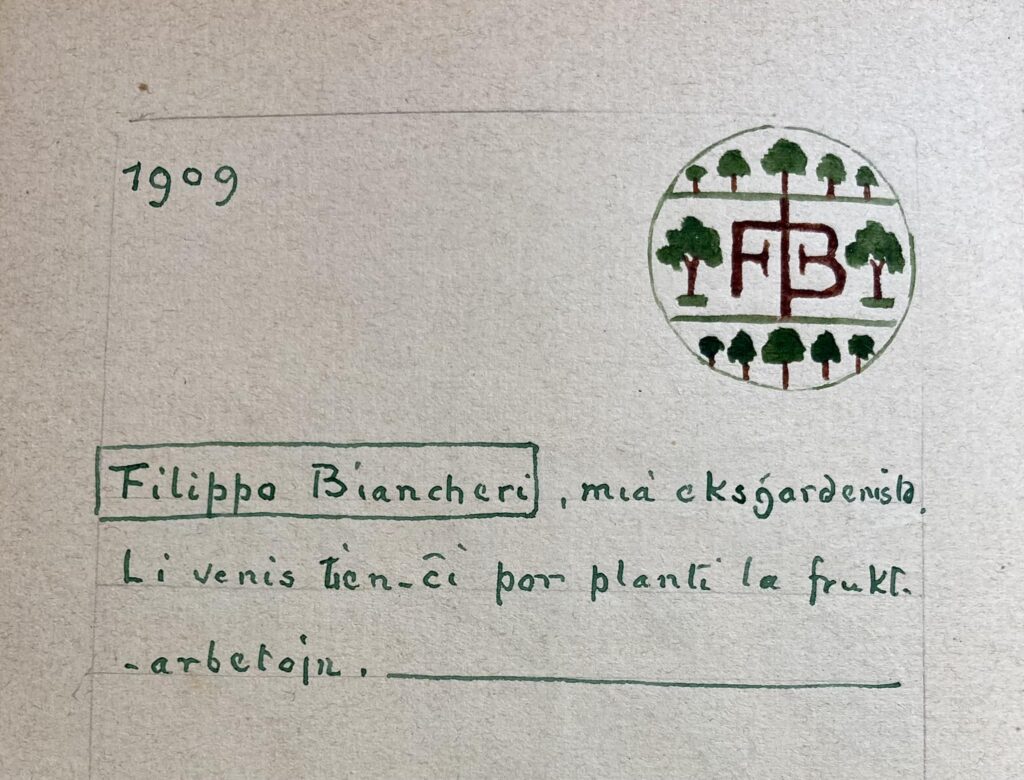 1909
FB
Filippo Biancheri, mia eksĝardenisto.
Li venis tien-ĉi por planti la frukt-
-arbetojn.